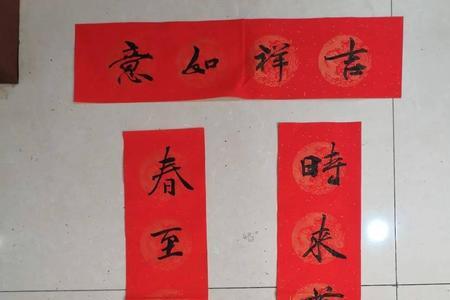 吉祥如意
時來
春至